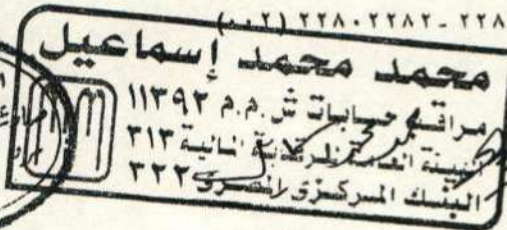 ٢٢٨٠٢٢٨٢ - ٢٢٨
محمد محمد إسماعيل
مراقب حسابات ش.م.م ١١٣٩٢
الهيئة العامة للرقابة المالية ٣١٣
البنك المركزى المصرى ٣٢٣